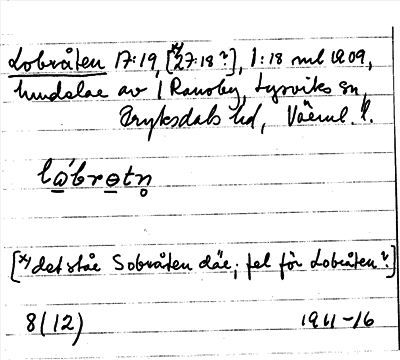 Lobråten 17:19, [x) 27:18?], 1:18 rml 1909,
hundelar av 1 Ransby, Lysviks sn,
Fryksdals hd, Värml. l.
lo̲´bro̲tn̥
[x) det står Sobråten där; fel för Lobråten?]
8(12) 1911-16